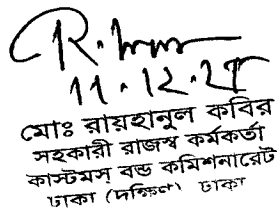 11.12.24
মোঃ রায়হানুল কবির
সহকারী রাজস্ব কর্মকর্তা
কাস্টমস্ বন্ড কমিশনারেট
ঢাকা (দক্ষিণ) ঢাকা